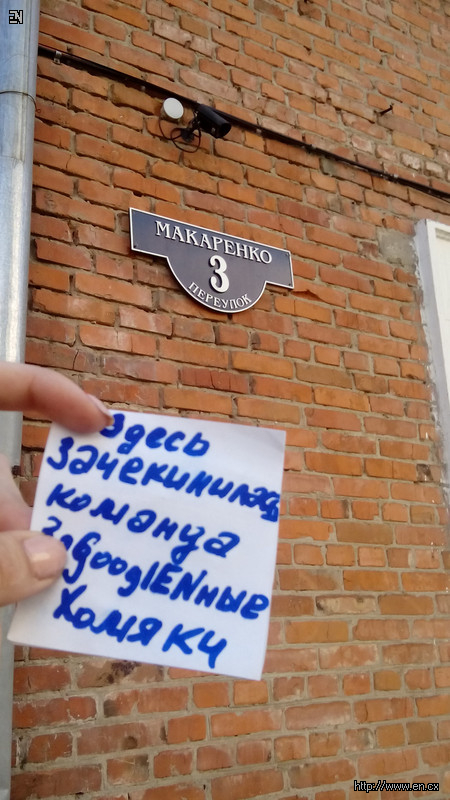 EN
МАКАРЕНКО
3
ПЕРЕУЛОК
здесь
зачекинилась
команда
заGooglENные
хомяки
http://www.en.cx